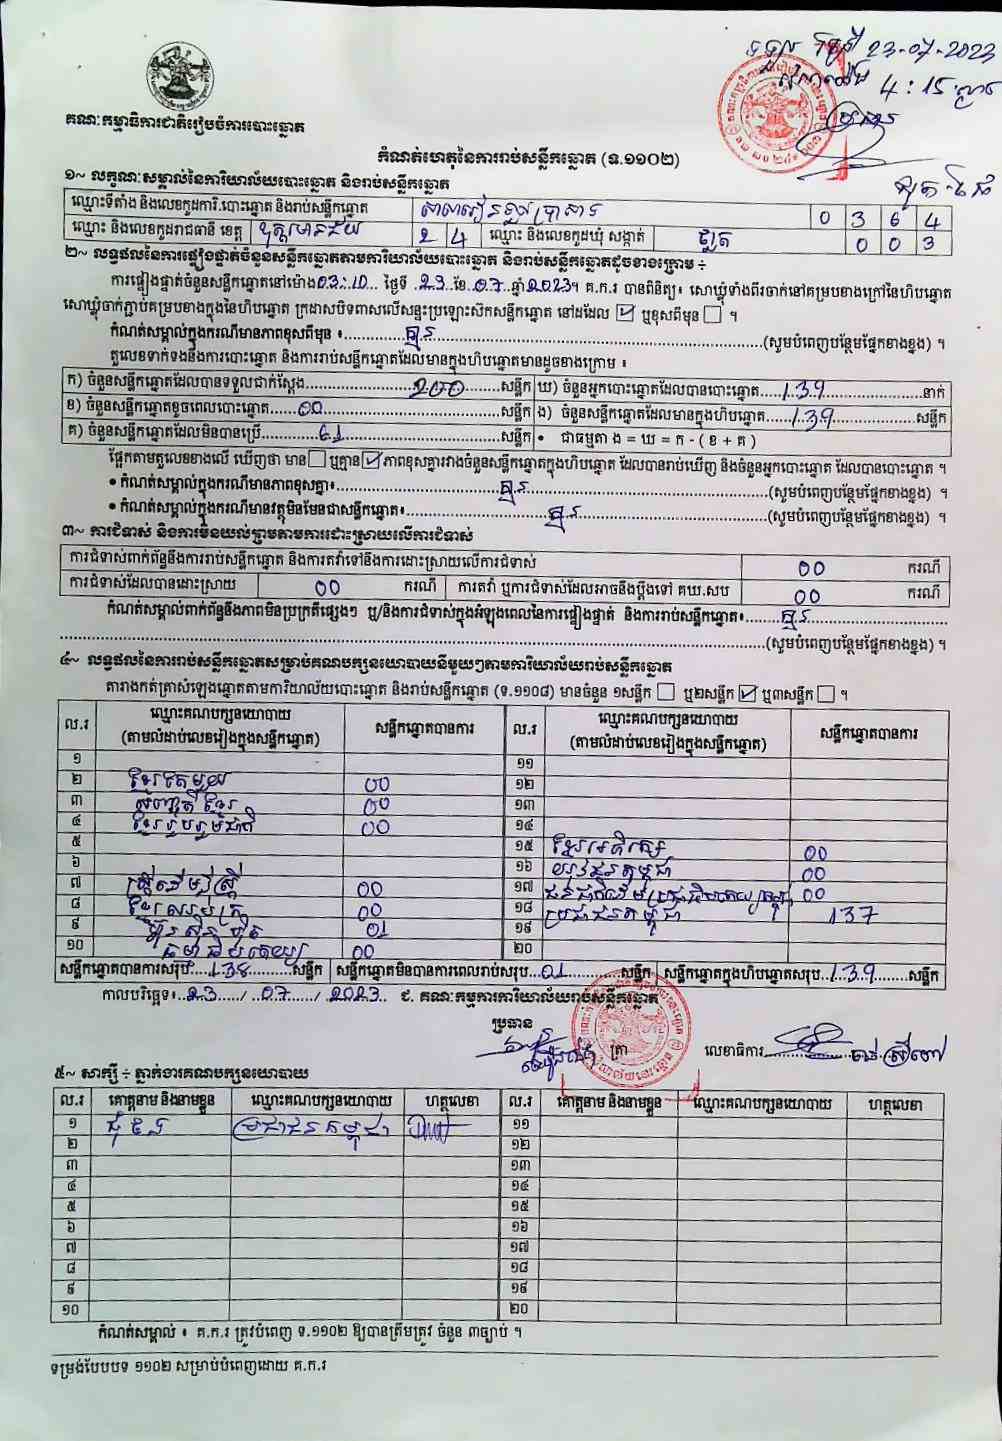 ទទួល ថ្ងៃទី 23-07-2023
4 : 15 នាទី
ប្រធាន
គណៈកម្មាធិការជាតិរៀបចំការបោះឆ្នោត
កំណត់ហេតុនៃការរាប់សន្លឹកឆ្នោត (ទ.១១០២)
១~ លក្ខណៈសម្គាល់នៃការិយាល័យបោះឆ្នោត និងរាប់សន្លឹកឆ្នោត
ឈ្មោះទីតាំង និងលេខកូដការិ.បោះឆ្នោត និងរាប់សន្លឹកឆ្នោត 0 3 6 4
ឈ្មោះ និងលេខកូដរាជធានី ខេត្ត ឧត្តរមានជ័យ 2 4 ឈ្មោះ និងលេខកូដឃុំ សង្កាត់ 0 0 3
២~ លទ្ធផលនៃការផ្ទៀងផ្ទាត់ចំនួនសន្លឹកឆ្នោតតាមការិយាល័យបោះឆ្នោត និងរាប់សន្លឹកឆ្នោតដូចខាងក្រោម ÷
ការផ្ទៀងផ្ទាត់ចំនួនសន្លឹកឆ្នោតនៅម៉ោង 03:10 ថ្ងៃទី 23 ខែ 07 ឆ្នាំ 2023។ គ.ក.រ បានពិនិត្យ៖ សោឃ្លុំទាំងពីរចាក់នៅគម្របខាងក្រៅនៃហិបឆ្នោត
សោឃ្លុំចាក់ភ្ជាប់គម្របខាងក្នុងនៃហិបឆ្នោត ក្រដាសបិទពាសលើសន្ទះប្រឡោះស៊កសន្លឹកឆ្នោត នៅដដែល ☑ ឬខុសពីមុន ☐ ។
កំណត់សម្គាល់ក្នុងករណីមានភាពខុសពីមុន ៖ គ្មាន (សូមបំពេញបន្ថែមផ្នែកខាងខ្នង) ។
តួលេខទាក់ទងនឹងការបោះឆ្នោត និងការរាប់សន្លឹកឆ្នោតដែលមានក្នុងហិបឆ្នោតមានដូចខាងក្រោម ៖
ក) ចំនួនសន្លឹកឆ្នោតដែលបានទទួលជាក់ស្តែង 200 សន្លឹក ឃ) ចំនួនអ្នកបោះឆ្នោតដែលបានបោះឆ្នោត 139 នាក់
ខ) ចំនួនសន្លឹកឆ្នោតខូចពេលបោះឆ្នោត 00 សន្លឹក ង) ចំនួនសន្លឹកឆ្នោតដែលមានក្នុងហិបឆ្នោត 139 សន្លឹក
គ) ចំនួនសន្លឹកឆ្នោតដែលមិនបានប្រើ 61 សន្លឹក • ជាធម្មតា ង = ឃ = ក - ( ខ + គ )
ផ្អែកតាមតួលេខខាងលើ ឃើញថា មាន ☐ ឬគ្មាន ☑ ភាពខុសគ្នារវាងចំនួនសន្លឹកឆ្នោតក្នុងហិបឆ្នោត ដែលបានរាប់ឃើញ និងចំនួនអ្នកបោះឆ្នោត ដែលបានបោះឆ្នោត ។
• កំណត់សម្គាល់ក្នុងករណីមានភាពខុសគ្នា៖ គ្មាន (សូមបំពេញបន្ថែមផ្នែកខាងខ្នង) ។
• កំណត់សម្គាល់ក្នុងករណីមានវត្ថុមិនមែនជាសន្លឹកឆ្នោត៖ គ្មាន (សូមបំពេញបន្ថែមផ្នែកខាងខ្នង) ។
៣~ ការជំទាស់ និងការមិនយល់ព្រមតាមការដោះស្រាយលើការជំទាស់
ការជំទាស់ពាក់ព័ន្ធនឹងការរាប់សន្លឹកឆ្នោត និងការតវ៉ាទៅនឹងការដោះស្រាយលើការជំទាស់ 00 ករណី
ការជំទាស់ដែលបានដោះស្រាយ 00 ករណី ការតវ៉ា ឬការជំទាស់ដែលអាចនឹងប្តឹងទៅ គឃ.សប 00 ករណី
កំណត់សម្គាល់ពាក់ព័ន្ធនឹងភាពមិនប្រក្រតីផ្សេងៗ ឬ/និងការជំទាស់ក្នុងអំឡុងពេលនៃការផ្ទៀងផ្ទាត់ និងការរាប់សន្លឹកឆ្នោត៖ គ្មាន
(សូមបំពេញបន្ថែមផ្នែកខាងខ្នង) ។
៤~ លទ្ធផលនៃការរាប់សន្លឹកឆ្នោតសម្រាប់គណបក្សនយោបាយនីមួយៗតាមការិយាល័យរាប់សន្លឹកឆ្នោត
តារាងកត់ត្រាសំឡេងឆ្នោតតាមការិយាល័យបោះឆ្នោត និងរាប់សន្លឹកឆ្នោត (ទ.១១០៨) មានចំនួន ១សន្លឹក ☐ ឬ២សន្លឹក ☑ ឬ៣សន្លឹក ☐ ។
ល.រ ឈ្មោះគណបក្សនយោបាយ (តាមលំដាប់លេខរៀងក្នុងសន្លឹកឆ្នោត) សន្លឹកឆ្នោតបានការ ល.រ ឈ្មោះគណបក្សនយោបាយ (តាមលំដាប់លេខរៀងក្នុងសន្លឹកឆ្នោត) សន្លឹកឆ្នោតបានការ
១ ១១
២ ខ្មែរតែមួយ 00 ១២
៣ សញ្ជាតិខ្មែរ 00 ១៣
៤ ខ្មែររួបរួមជាតិ 00 ១៤
៥ ១៥ ខ្មែរអភិរក្ស 00
៦ ១៦ យុវជនកម្ពុជា 00
៧ ស្រ្តីដើម្បីស្រ្តី 00 ១៧ 00
៨ 00 ១៨ ប្រជាជនកម្ពុជា 137
៩ ហ៊្វុនស៊ិនប៉ិច 01 ១៩
១០ ធម្មាធិបតេយ្យ 00 ២០
សន្លឹកឆ្នោតបានការសរុប 138 សន្លឹក សន្លឹកឆ្នោតមិនបានការពេលរាប់សរុប 01 សន្លឹក សន្លឹកឆ្នោតក្នុងហិបឆ្នោតសរុប 139 សន្លឹក
កាលបរិច្ឆេទ៖ 23 / 07 / 2023 ជ. គណៈកម្មការការិយាល័យរាប់សន្លឹកឆ្នោត
ប្រធាន
ត្រា លេខាធិការ
៥~ សាក្សី ÷ ភ្នាក់ងារគណបក្សនយោបាយ
ល.រ គោត្តនាម និងនាមខ្លួន ឈ្មោះគណបក្សនយោបាយ ហត្ថលេខា ល.រ គោត្តនាម និងនាមខ្លួន ឈ្មោះគណបក្សនយោបាយ ហត្ថលេខា
១ ប្រជាជនកម្ពុជា ១១
២ ១២
៣ ១៣
៤ ១៤
៥ ១៥
៦ ១៦
៧ ១៧
៨ ១៨
៩ ១៩
១០ ២០
កំណត់សម្គាល់ ៖ គ.ក.រ ត្រូវបំពេញ ទ.១១០២ ឱ្យបានត្រឹមត្រូវ ចំនួន ៣ច្បាប់ ។
ទម្រង់បែបបទ ១១០២ សម្រាប់បំពេញដោយ គ.ក.រ